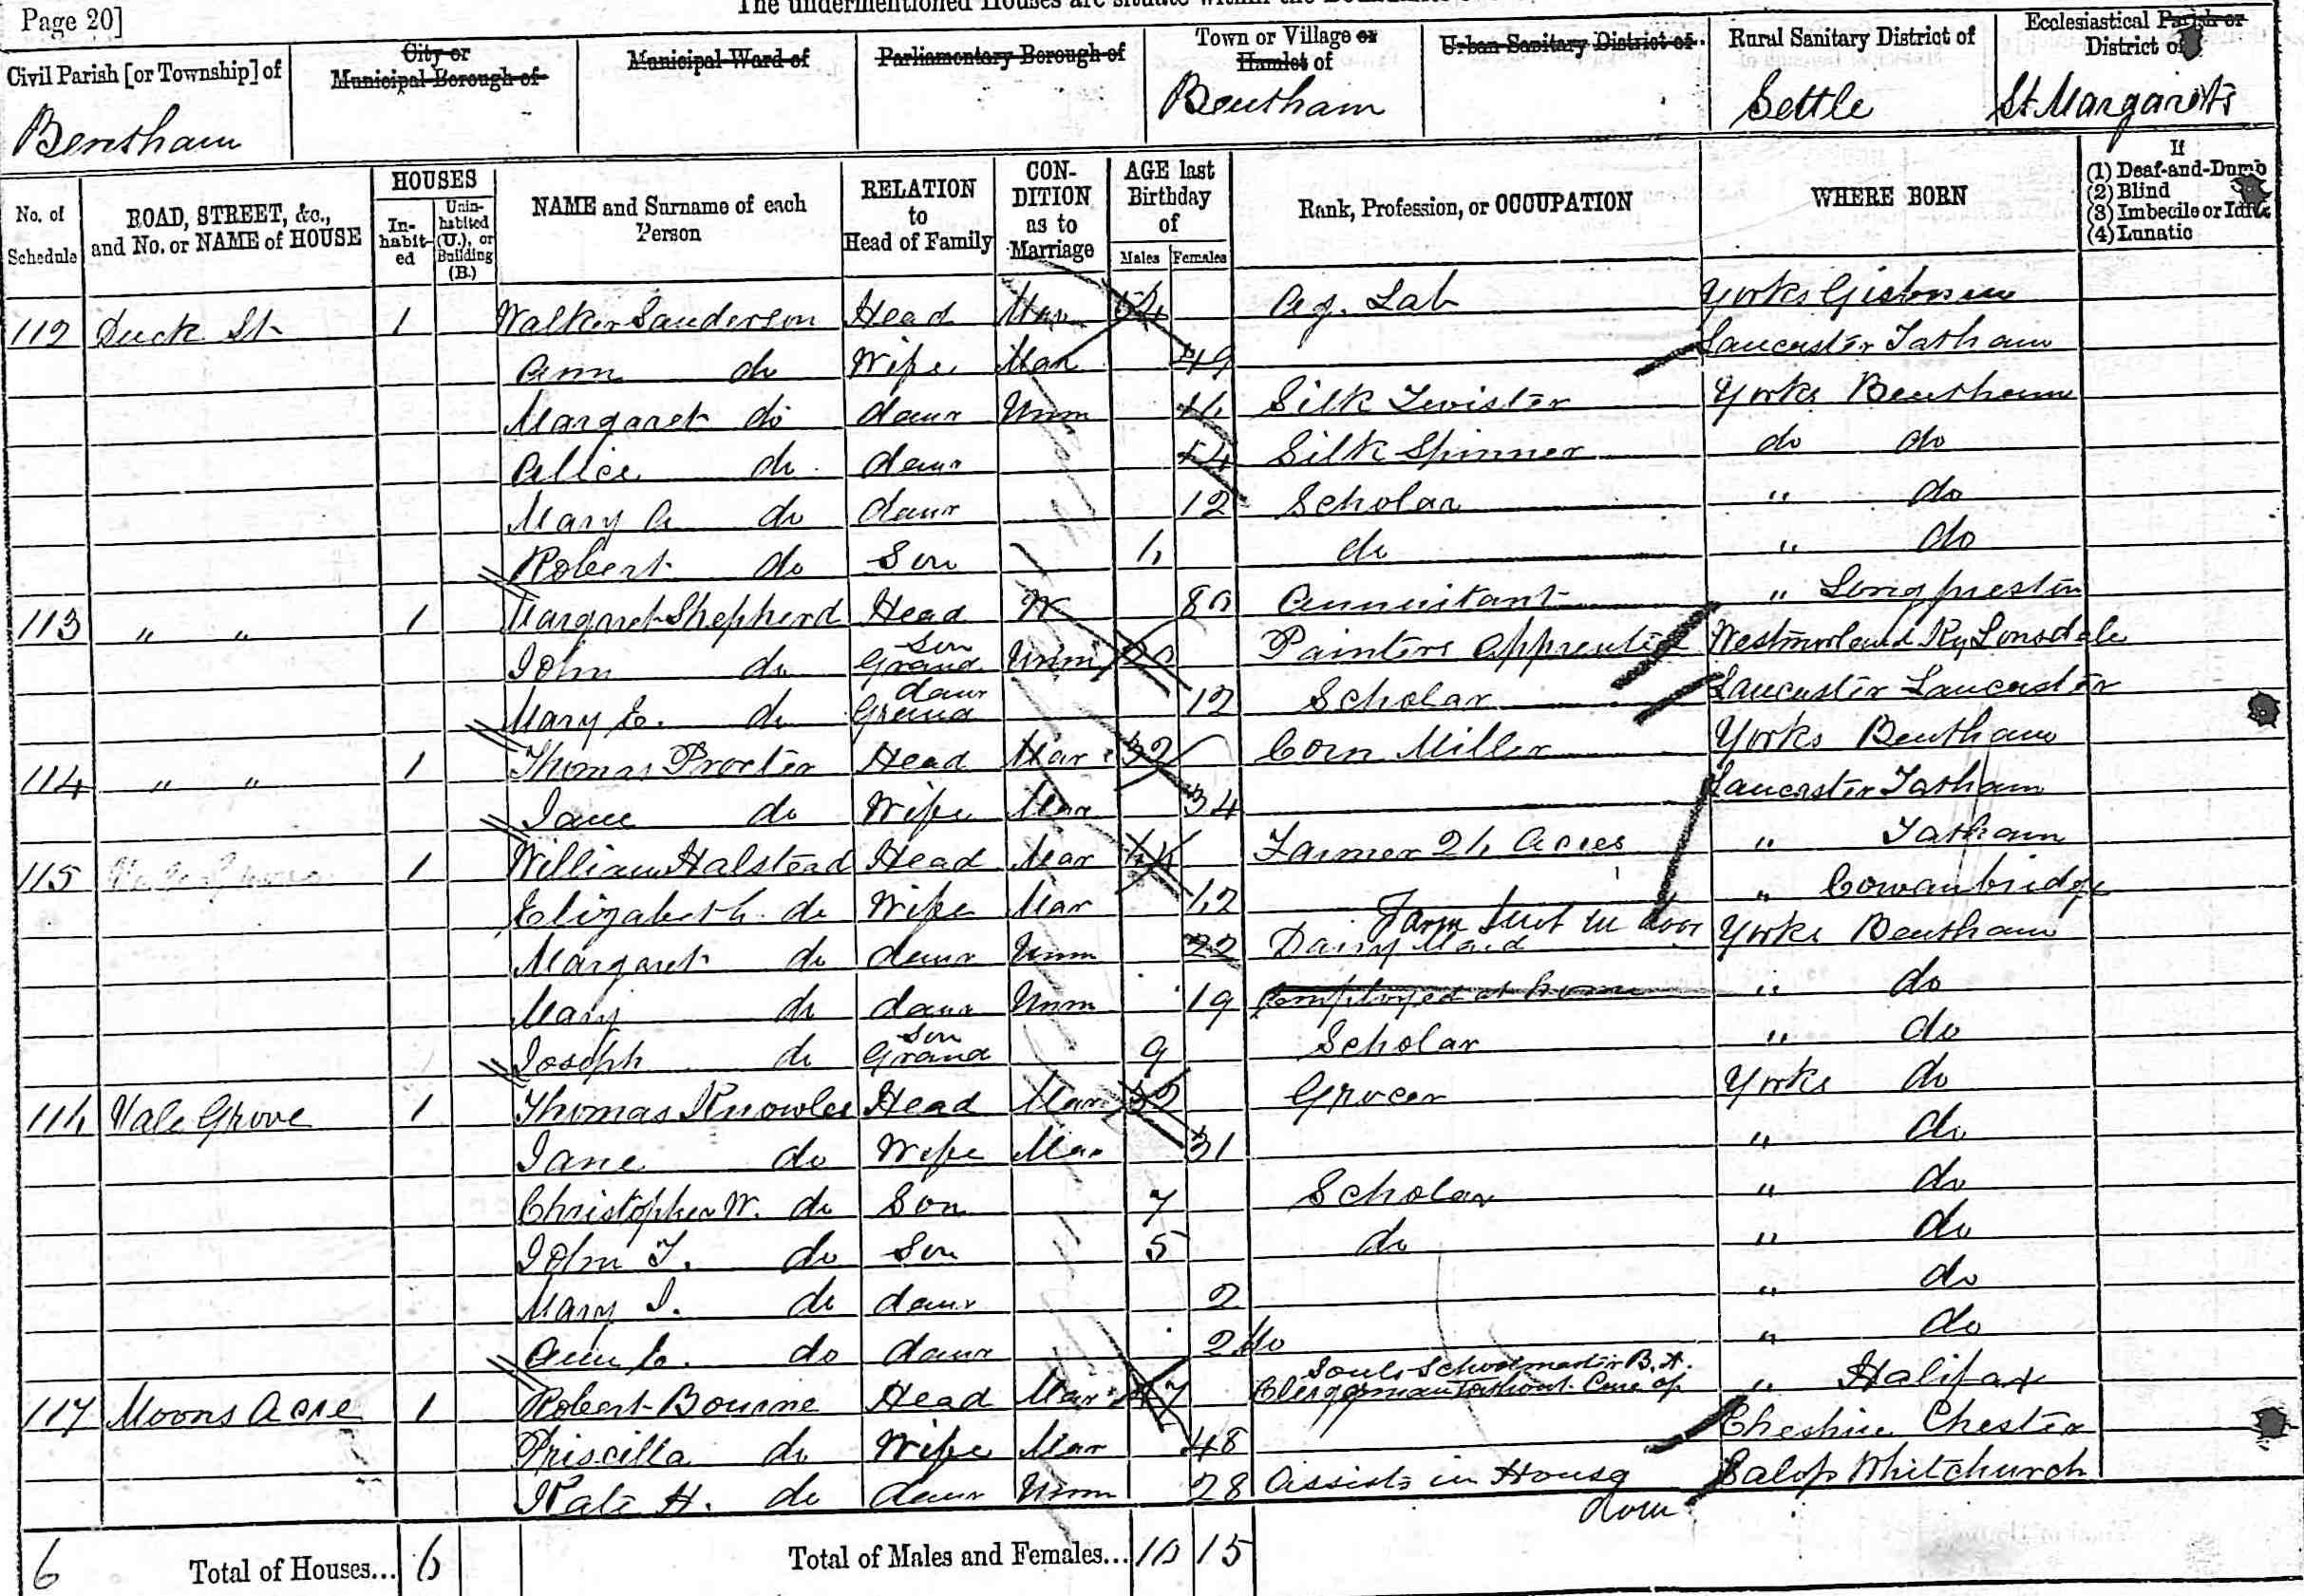 The undermentioned Houses are situate within the
Page 20]
Civil Parish [or Township] of
Bentham
City or Municipal Borough of
Municipal Ward of
Parliamentary Borough of
Town or Village or Hamlet of
Bentham
Urban Sanitary District of
Rural Sanitary District of
Settle
Ecclesiastical Parish or District of
St Margarets
No. of Schedule
ROAD, STREET, &c., and No. or NAME of HOUSE
HOUSES
In-habit-ed
Unin-habited (U.), or Building (B.)
NAME and Surname of each Person
RELATION to Head of Family
CON-DITION as to Marriage
AGE last Birthday of
Males Females
Rank, Profession, or OCCUPATION
WHERE BORN
If
(1) Deaf-and-Dumb
(2) Blind
(3) Imbecile or Idiot
(4) Lunatic
112 Duck St 1 Walker Sanderson Head Mar 54 Ag. Lab Yorks Gisburn
Ann do Wife Mar 49 Lancaster Tatham
Margaret do daur Unm 16 Silk Twister Yorks Bentham
Alice do daur 14 Silk Spinner do do
Mary A do daur 12 Scholar " do
Robert do Son 6 do " do
113 " " 1 Margaret Shepherd Head W 80 Annuitant " Longpreston
John do Grand Son Unm 20 Painters Apprentice Westmorland Ky Lonsdale
Mary E. do Grand daur 12 Scholar Lancaster Lancaster
114 " " 1 Thomas Procter Head Mar 32 Corn Miller Yorks Bentham
Jane do Wife Mar 34 Lancaster Tatham
115 Vale Grove 1 William Halstead Head Mar 64 Farmer 26 Acres " Tatham
Elizabeth do Wife Mar 62 " Cowanbridge
Margaret do daur Unm 22 Dairy Maid Farm Serv in door Yorks Bentham
Mary do daur Unm 19 employed at home " do
Joseph do Grand Son 9 Scholar " do
116 Vale Grove 1 Thomas Knowles Head Mar 32 Grocer Yorks do
Jane do Wife Mar 31 " do
Christopher W. do Son 7 Scholar " do
John T. do Son 5 do " do
Mary J. do daur 2 " do
Ann E. do daur 2 Mo " do
117 Moons Acre 1 Robert Bourne Head Mar 47 Clergyman without Cure of Souls Schoolmaster B.A. " Halifax
Priscilla do Wife Mar 48 Cheshire Chester
Kate H. do daur Unm 28 Assists in House Salop Whitchurch
dom
6 Total of Houses... 6 Total of Males and Females... 10 15